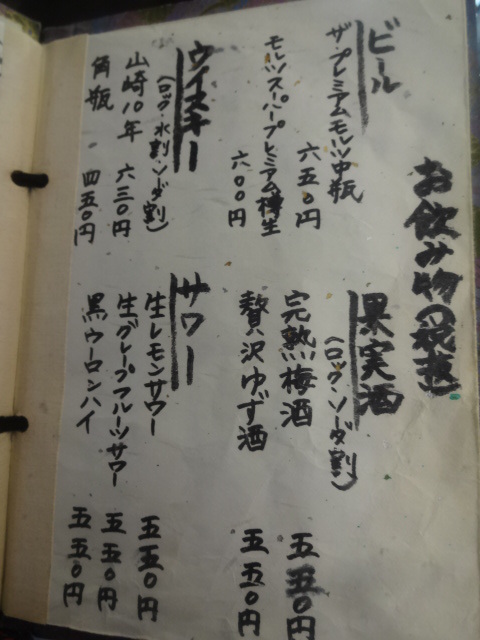 お飲み物(税込)
ビール
ザ・プレミアムモルツ中瓶 六五〇円
モルツスーパープレミアム樽生 六〇〇円
ウイスキー
(ロック・水割・ソーダ割)
山崎10年 六三〇円
角瓶 四五〇円
果実酒
(ロック・ソーダ割)
完熟梅酒 五五〇円
贅沢ゆず酒 五五〇円
サワー
生レモンサワー 五五〇円
生グレープフルーツサワー 五五〇円
黒ウーロンハイ 五五〇円